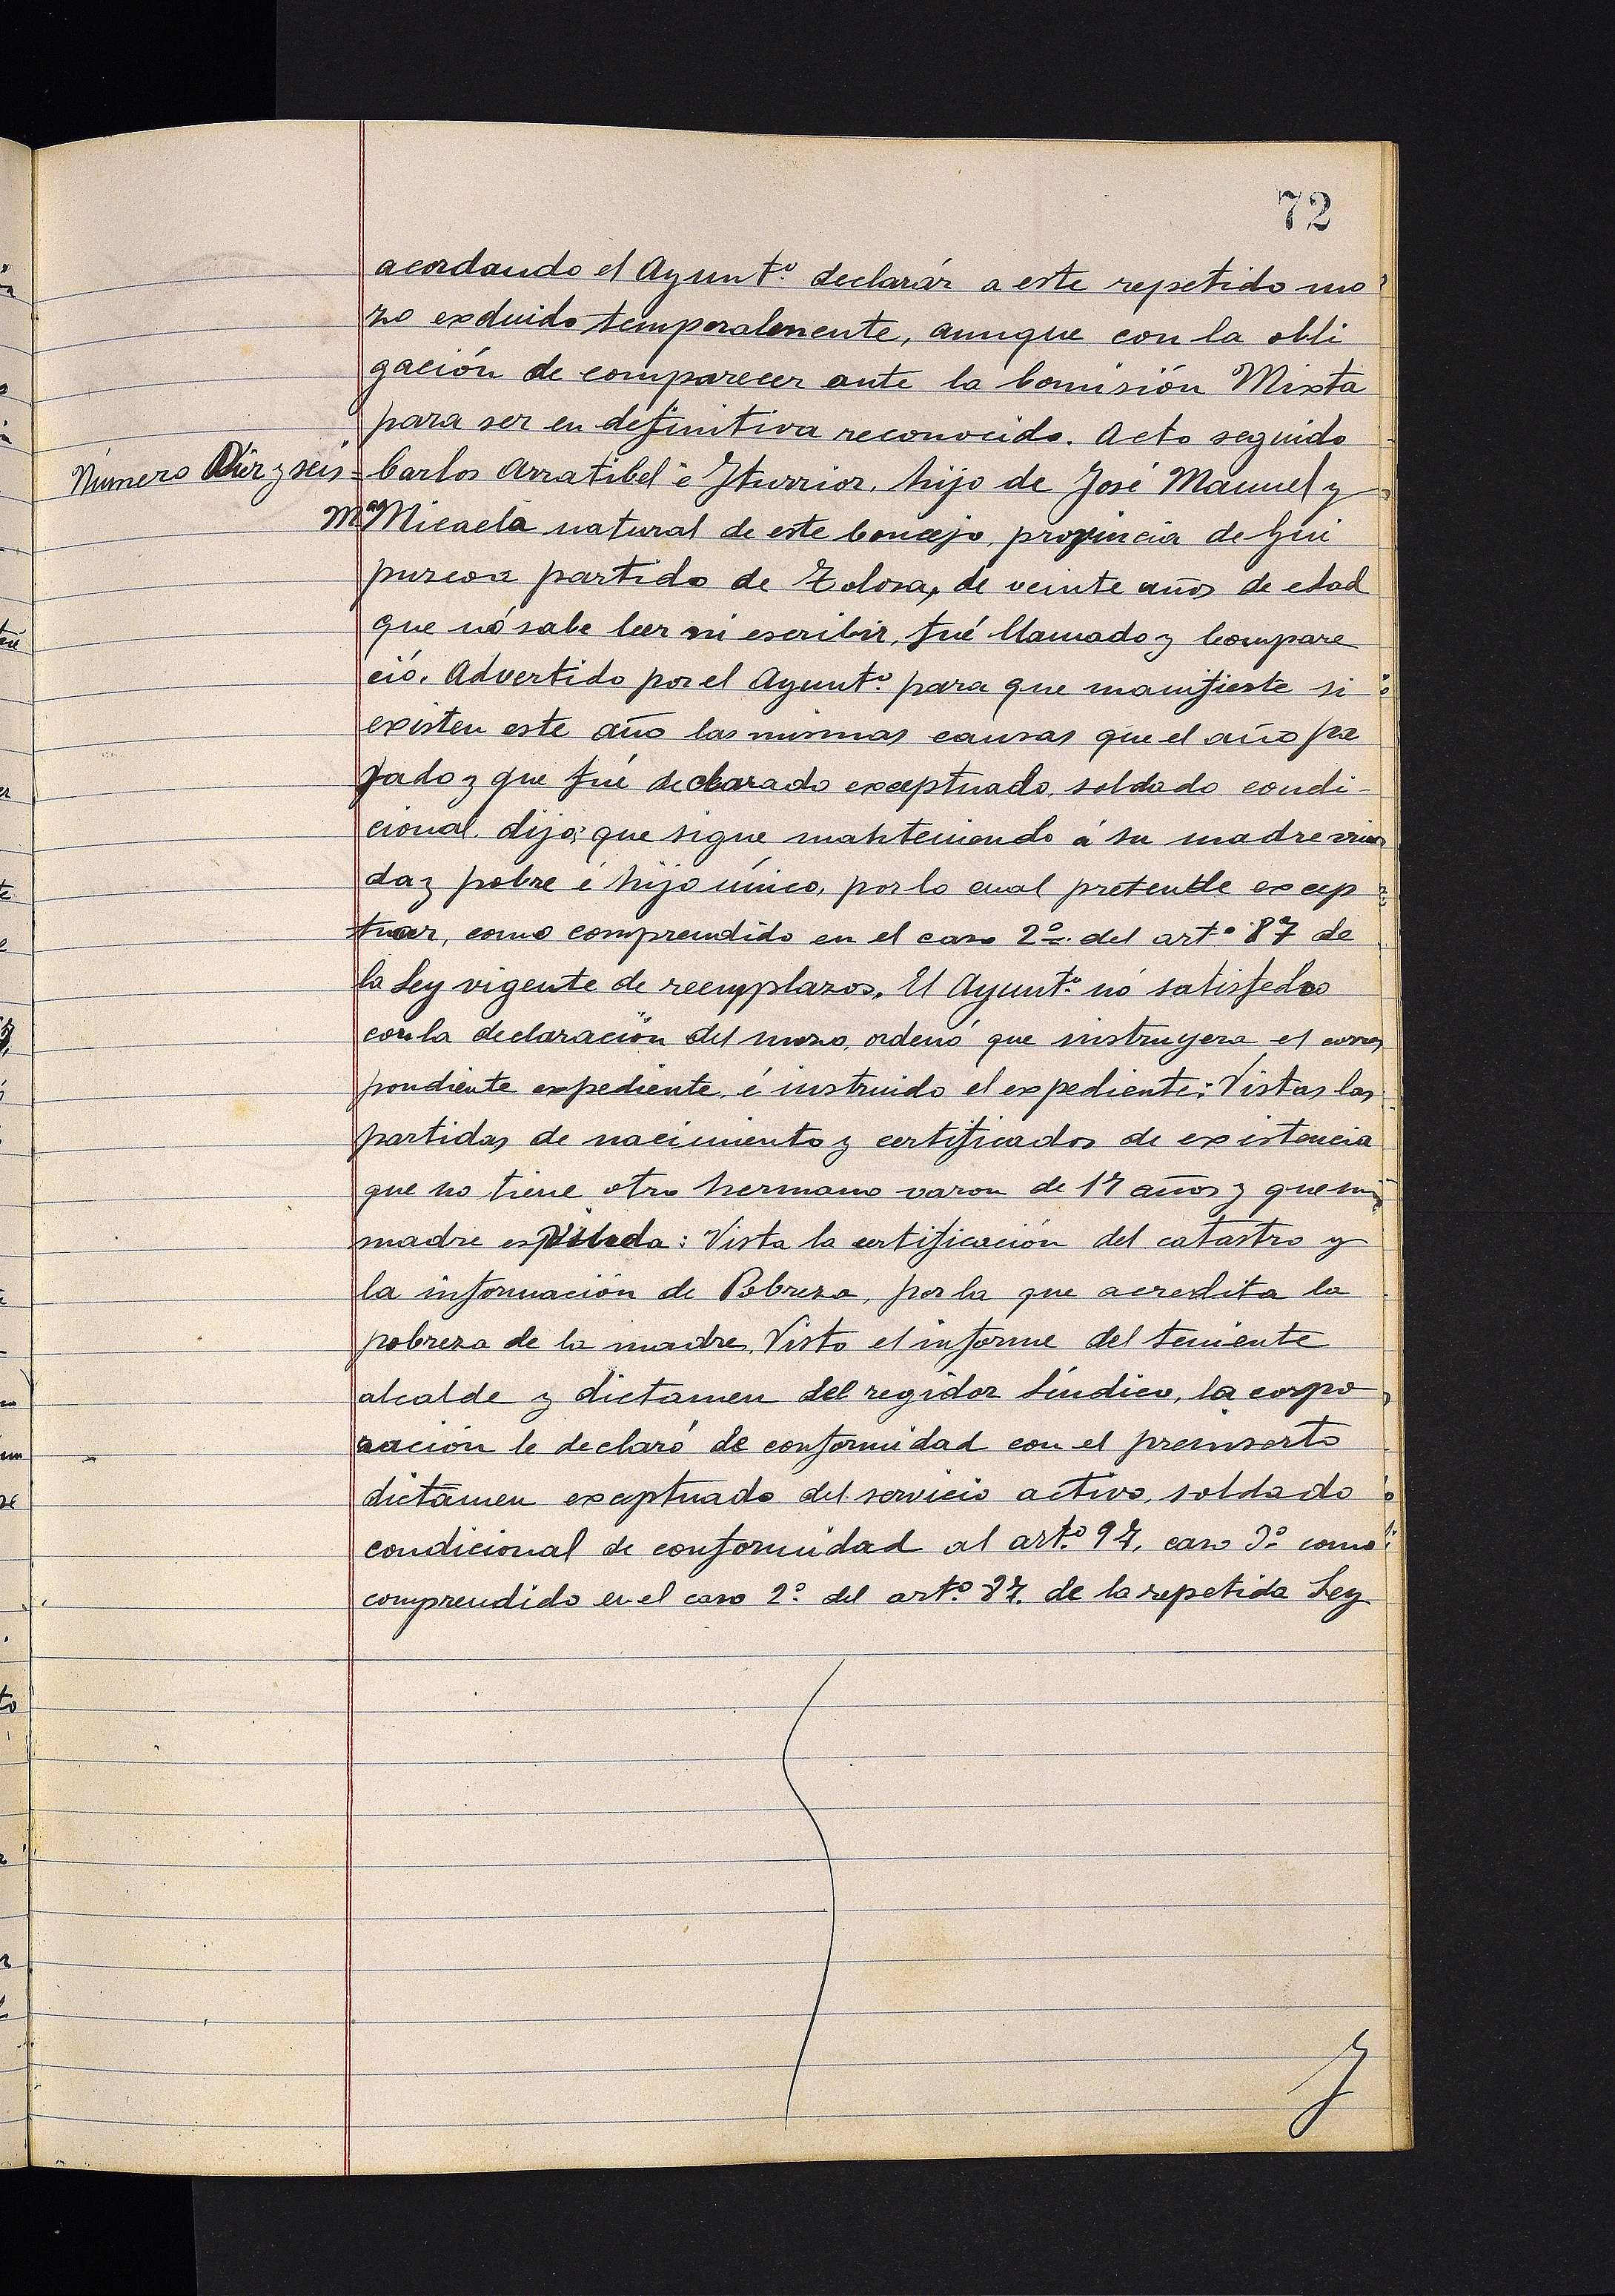 72
acordando el Ayunt.º declarár a este repetido mo
zo excluido temporalmente, aunque con la obli
gación de comparecer ante la Comisión Mixta
para ser en definitiva reconocido. Acto seguido
Número Diez y seis = Carlos Arratibel é Iturrioz, hijo de José Manuel y
Mª Micaela natural de este Concejo, provincia de Gui
puzcoa partido de Tolosa, de veinte años de edad
que nó sabe leer ni escribir, fué llamado y Compare
ció. Advertido por el Ayunt.º para que manifieste si
existen este año las mismas causas que el año pa
sado y que fué declarado exceptuado, soldado condi-
cional dijo; que sigue manteniendo á su madre viu
da y pobre é hijo único, por lo cual pretende excep
tuar, como comprendido en el caso 2º del artº 87 de
la Ley vigente de reemplazos. El Ayunt.º nó satisfecho
con la declaración del mozo, ordenó que instruyera el corres
pondiente expediente, é instruido el expediente: Vistas las
partidas de nacimiento y certificados de existencia
que no tiene otro hermano varon de 17 años y que su
madre es viuda: Vista la certificación del catastro y
la información de Pobreza, por la que acredita la
pobreza de la madre. Visto el informe del teniente
alcalde y dictamen del regidor Síndico, la corpo
ración le declaró de conformidad con el preinserto
dictámen exceptuado del servicio activo, soldado
condicional de conformidad al art.º 97, caso 3º como
comprendido en el caso 2º del art.º 87. de la repetida Ley